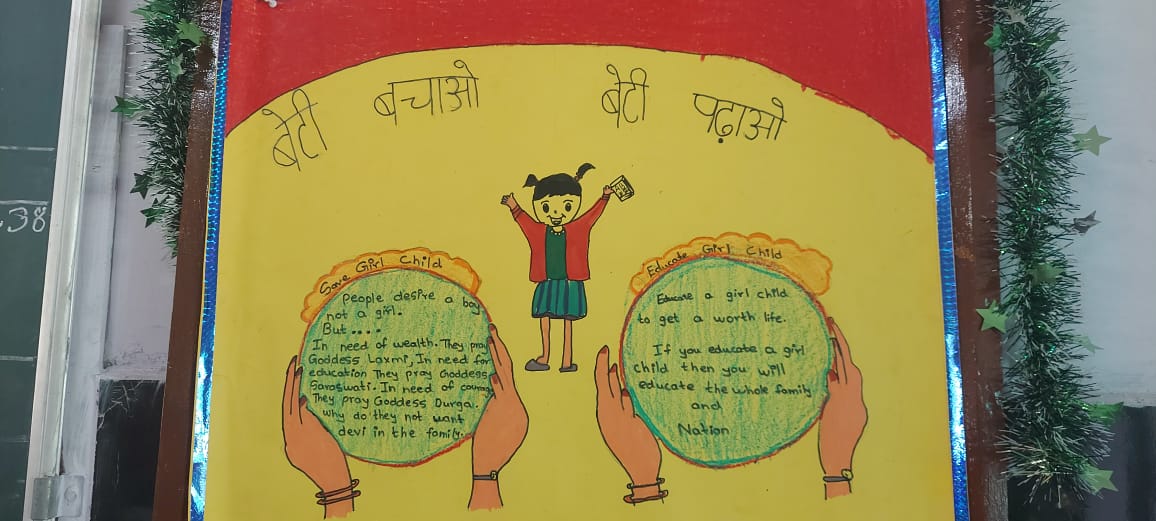 बेटी बचाओ बेटी पढ़ाओ
Save Girl Child
People desire a boy
not a girl.
But....
In need of wealth. They pray
Goddess Laxmi, In need for
education They pray Goddess
Saraswati. In need of courage
They pray Goddess Durga.
why do they not want
devi in the family.
Educate Girl Child
Educate a girl child
to get a worth life.
If you educate a girl
child then you will
educate the whole family
and
Nation
38